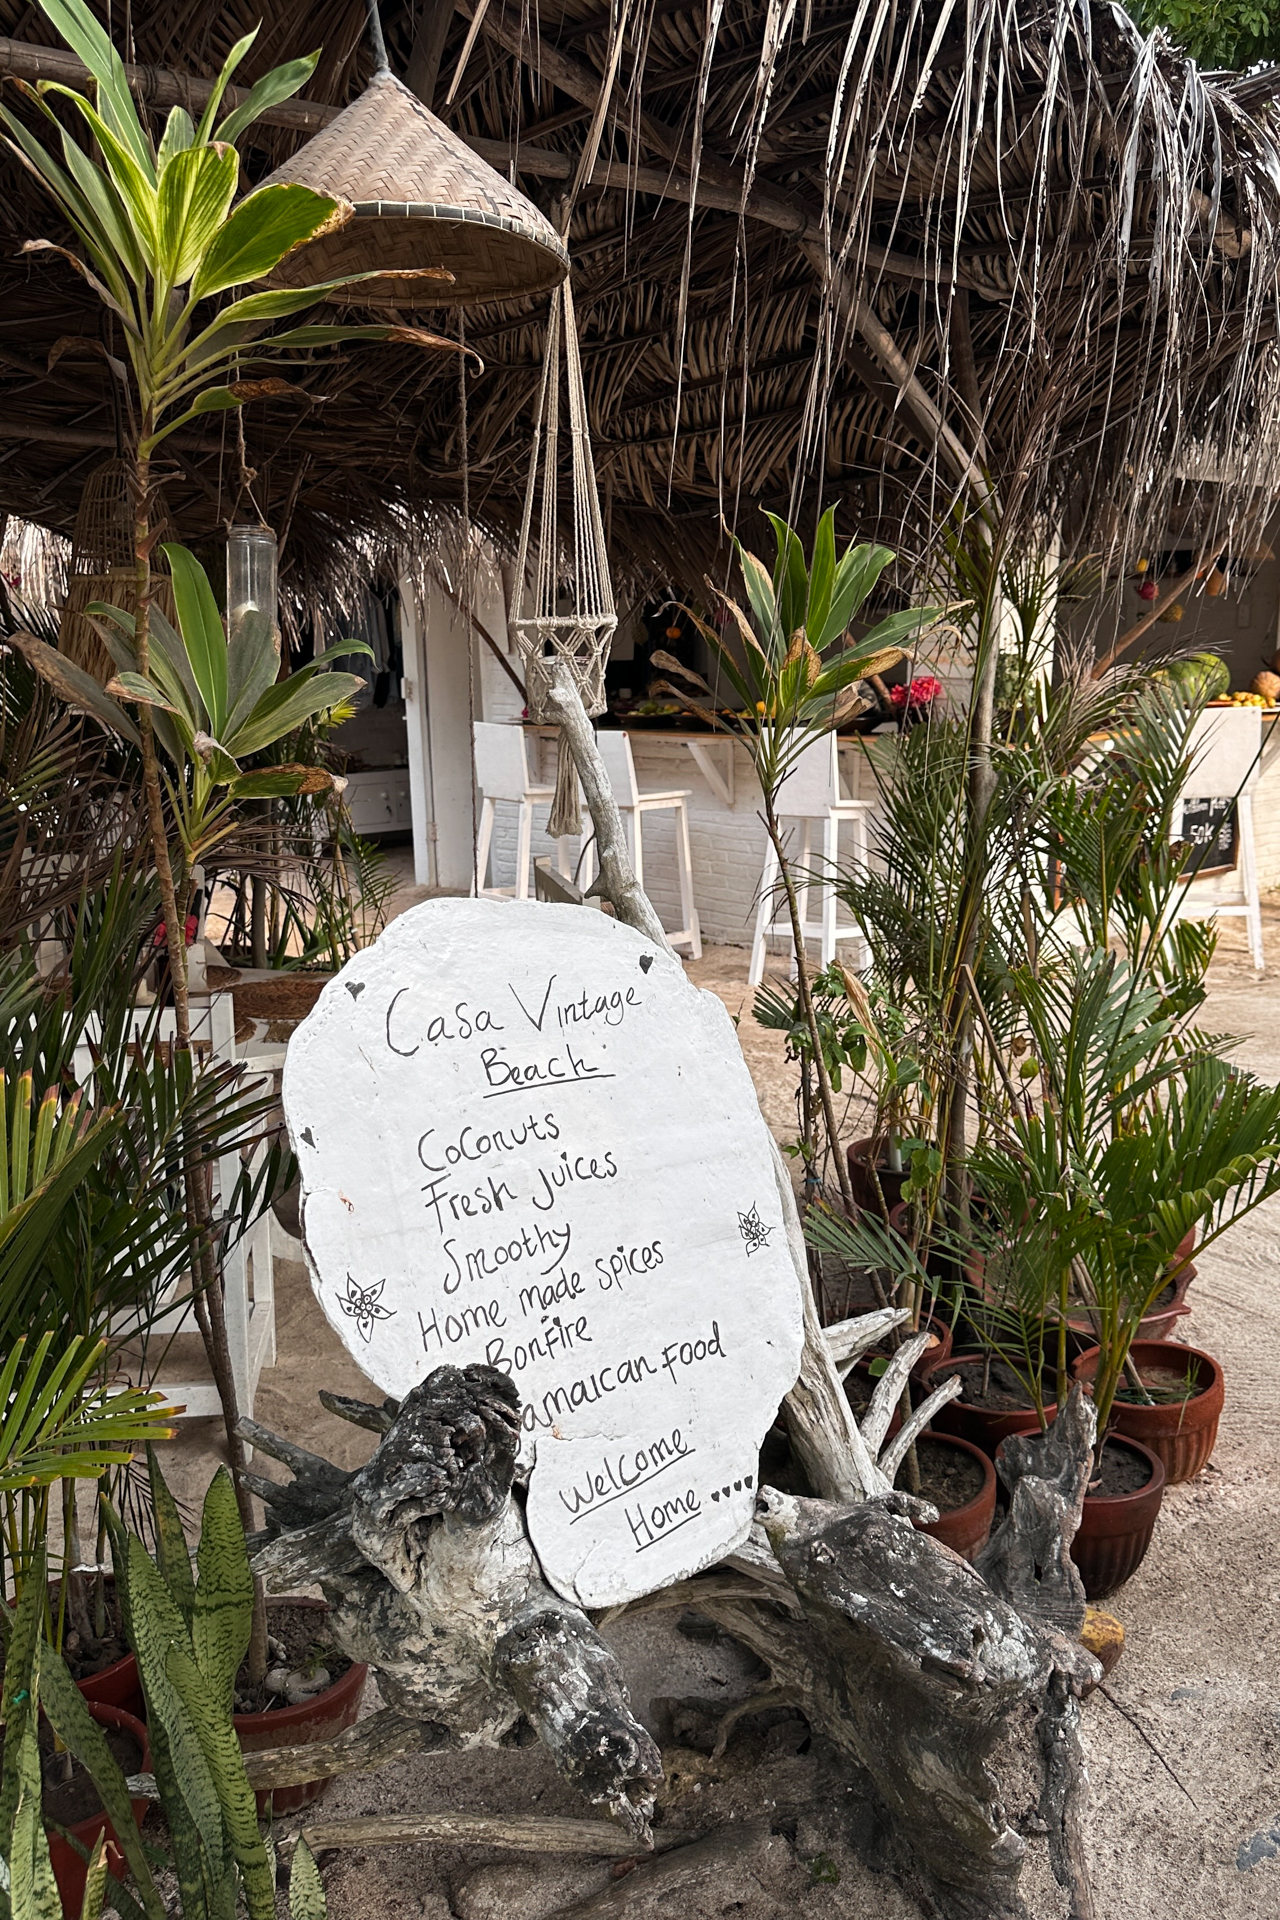 Casa Vintage
Beach
Coconuts
Fresh Juices
Smoothy
Home made spices
Bonfire
Jamaican Food
Welcome
Home